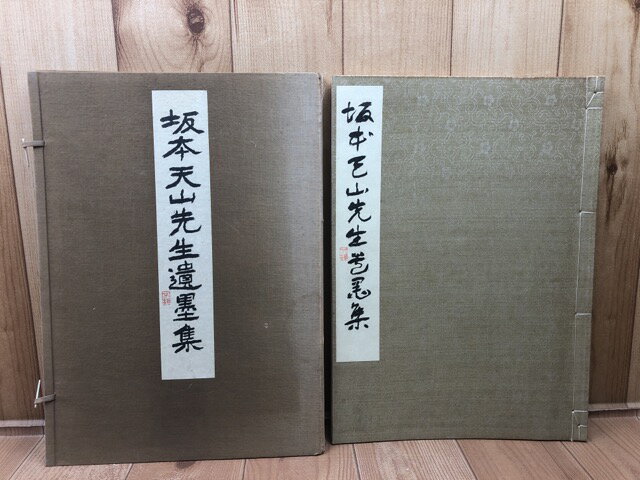 坂本天山先生遺墨集
坂本天山先生遺墨集